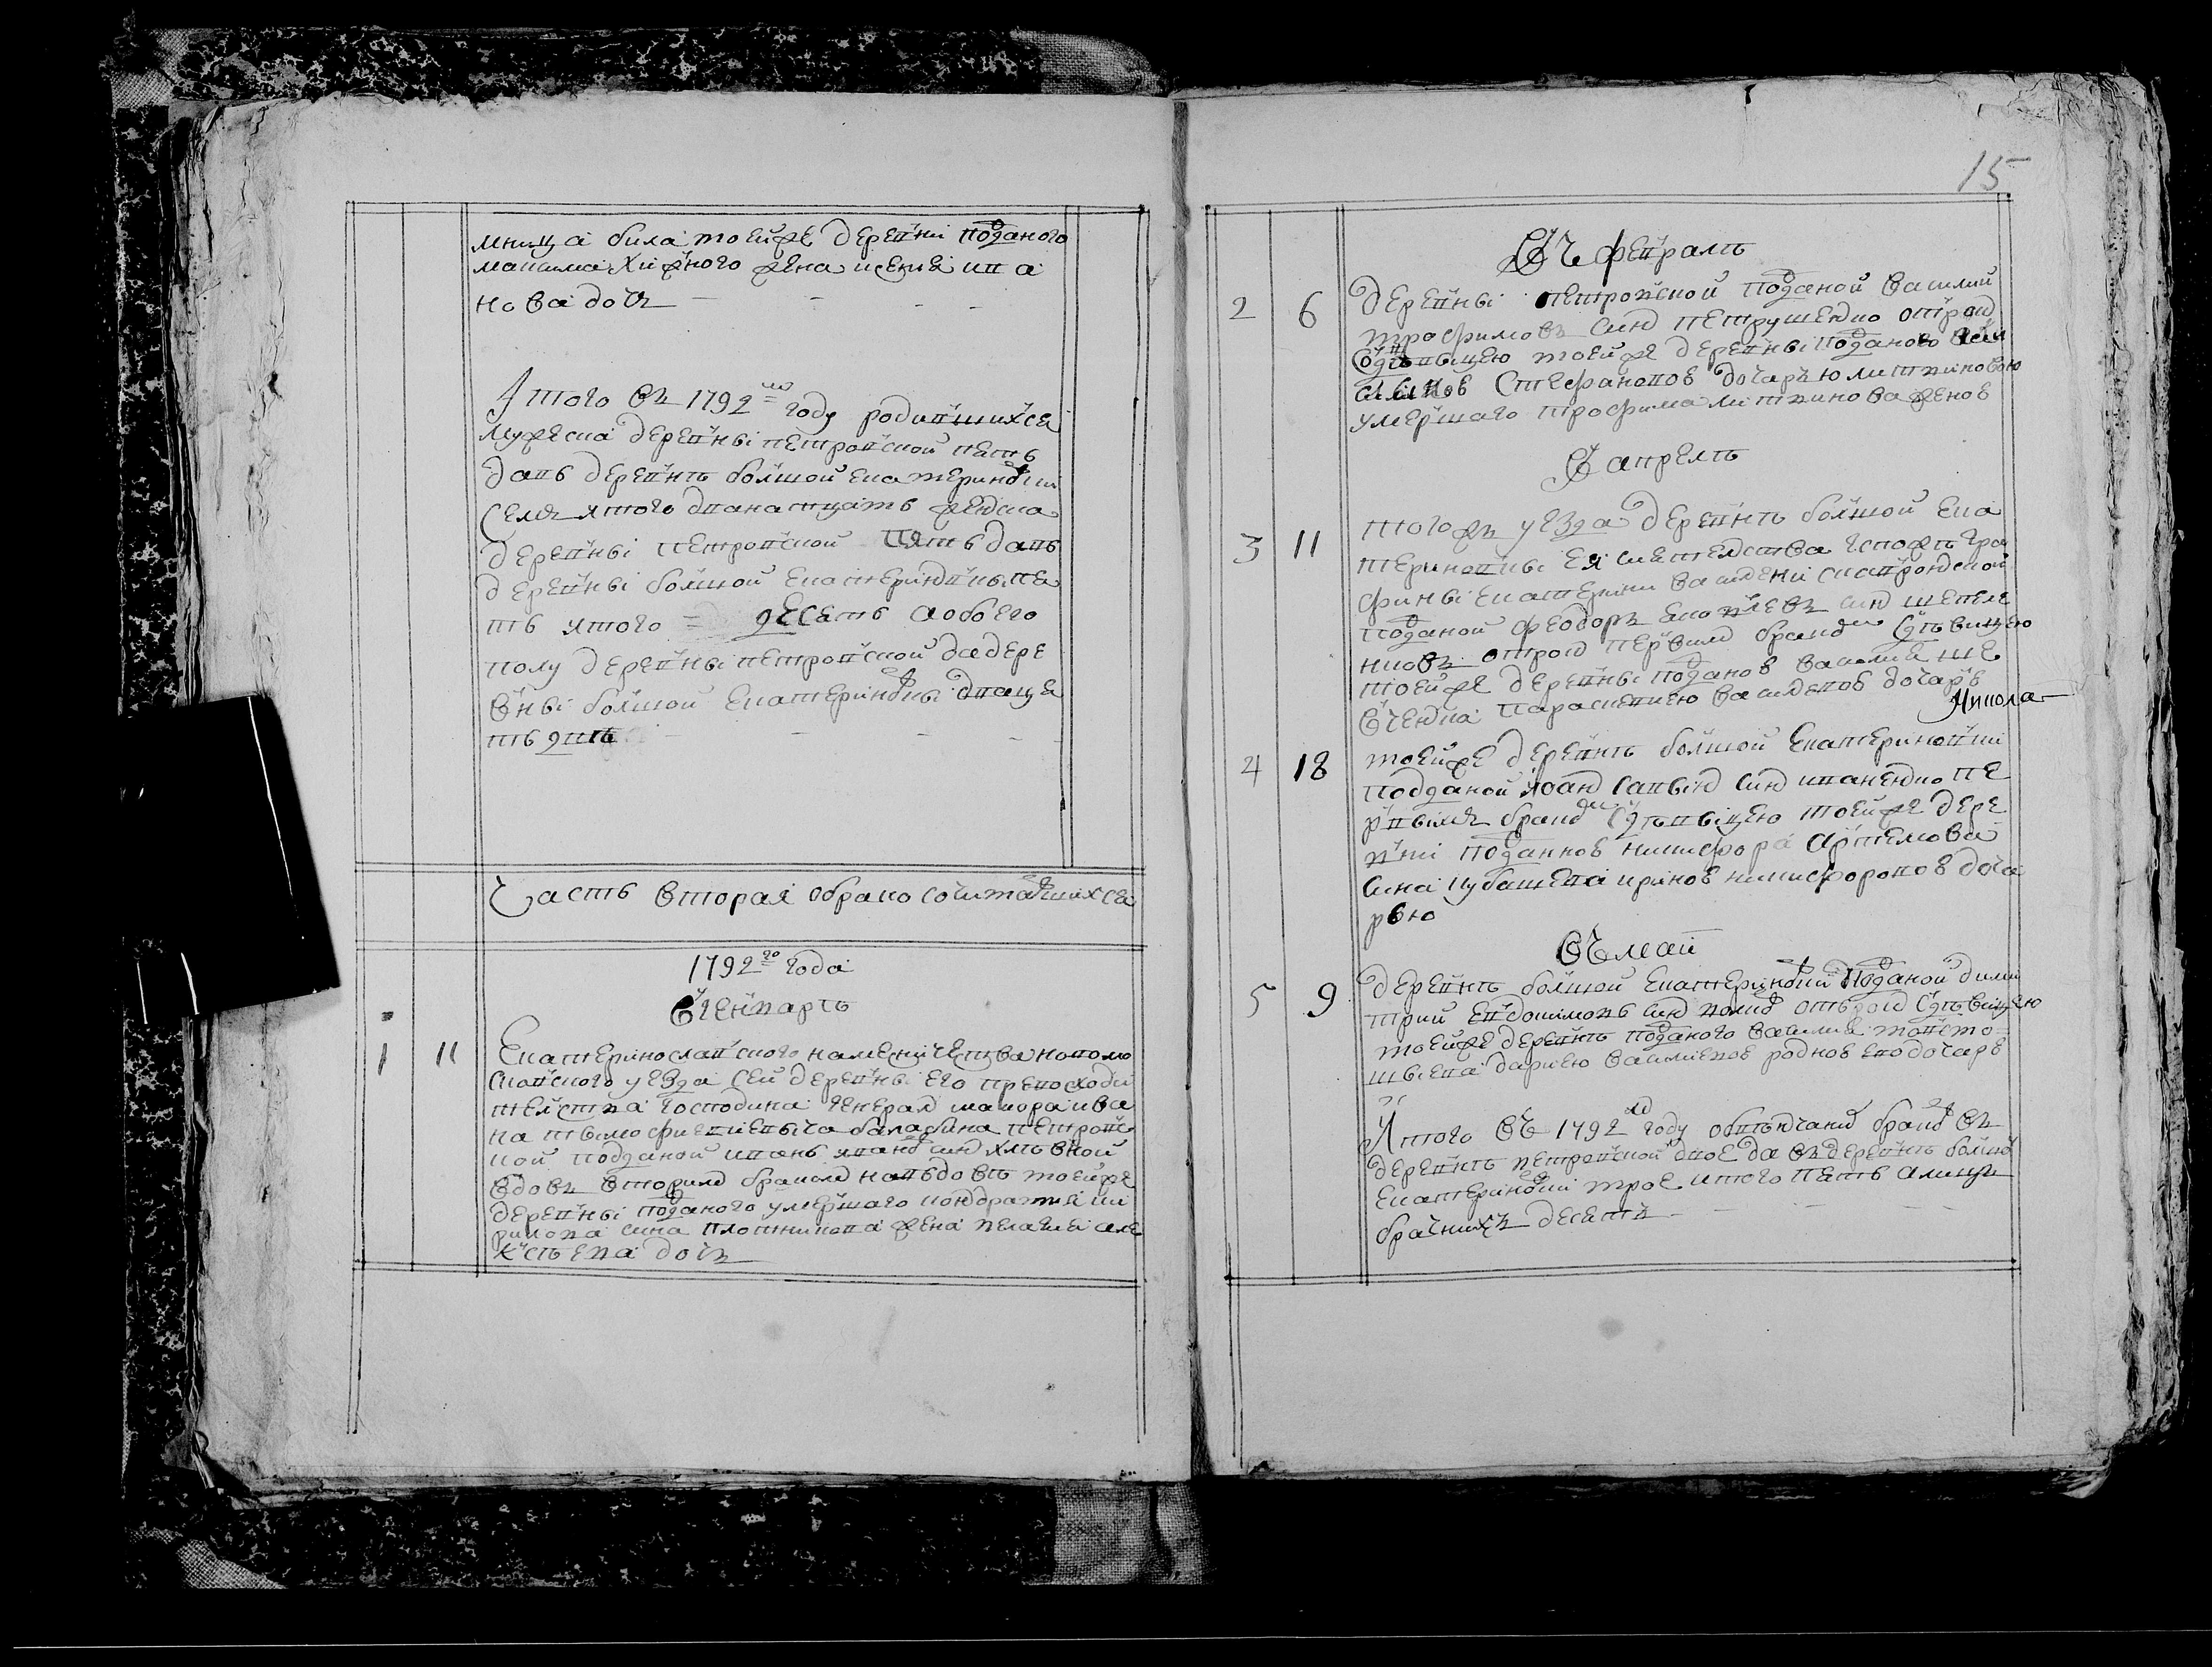 мница била тоейже деревни поданого
максима Хижного жена иекия ива
нова дочъ
Итого въ 1792мъ году родившихся
мужеска деревни петровской пять
дапъ деревнѣ болшой екатериновки
семъ итого двананцать женска
деревни петровской пять дапъ
деревни болшой екатериновки пя
ть итого = десеть а обоего
полу деревни петровской да дере
вни болшой екатериновки дваце
ть двѣ
Часть вторая обрако сочитавшихся
1792го года
Вгенварѣ
1 11 Екатеринославского намесничества новомо
сковского уезда сей деревни его превосходи
телства господина генерал маиора ива
на тимофиевича баларина петровс
кой подданой иванъ иванов син хмѣвной
вдовъ вторим браком навдовѣ тоейже
деревни поданого умершого кондратия ки
рилова сина плотникова жена пелагия але
ксѣева дочъ
15
Въ февралѣ
2 6 деревни петровской поданой василий
трофимовъ син петрушенко отрок
здѣвицею тоейже деревни поданого
Стефановов дочарю литвиновою
умершаго трофима литвинова женов
В апрелѣ
3 11 тогожъ уезда деревнѣ болшой ека
териновки ея сиятелства госпожѣ гра
фини екатерини василевни скавронской
поданой феодоръ яковлевъ син шевче
нковъ отрок первим браком здѣвицею
тоейже деревни поданов василия ше
вченка параскевиею василевов дочарв
Никола
4 18 тоейже деревнѣ болшой екатериновки
подданой иоан савин син иваненко пе
рвымъ браком здѣвицею тоейже дере
вни поданков никифора артемова
сина кубашева иринов никифоровов доча
рвю
Въ маи
5 9 деревнѣ болшой екатериновки поданой дими
трий евдокимовъ син попов отрок здѣвицею
тоейже деревнѣ поданого василия товсто=
шѣева дариею василиевов роднов его дочарв
Итого въ 1792м году обвѣнчани браков въ
деревнѣ петровской двое да въ деревнѣ болшой
екатериновки трое итого пять а лицъ
брачнихъ десеть